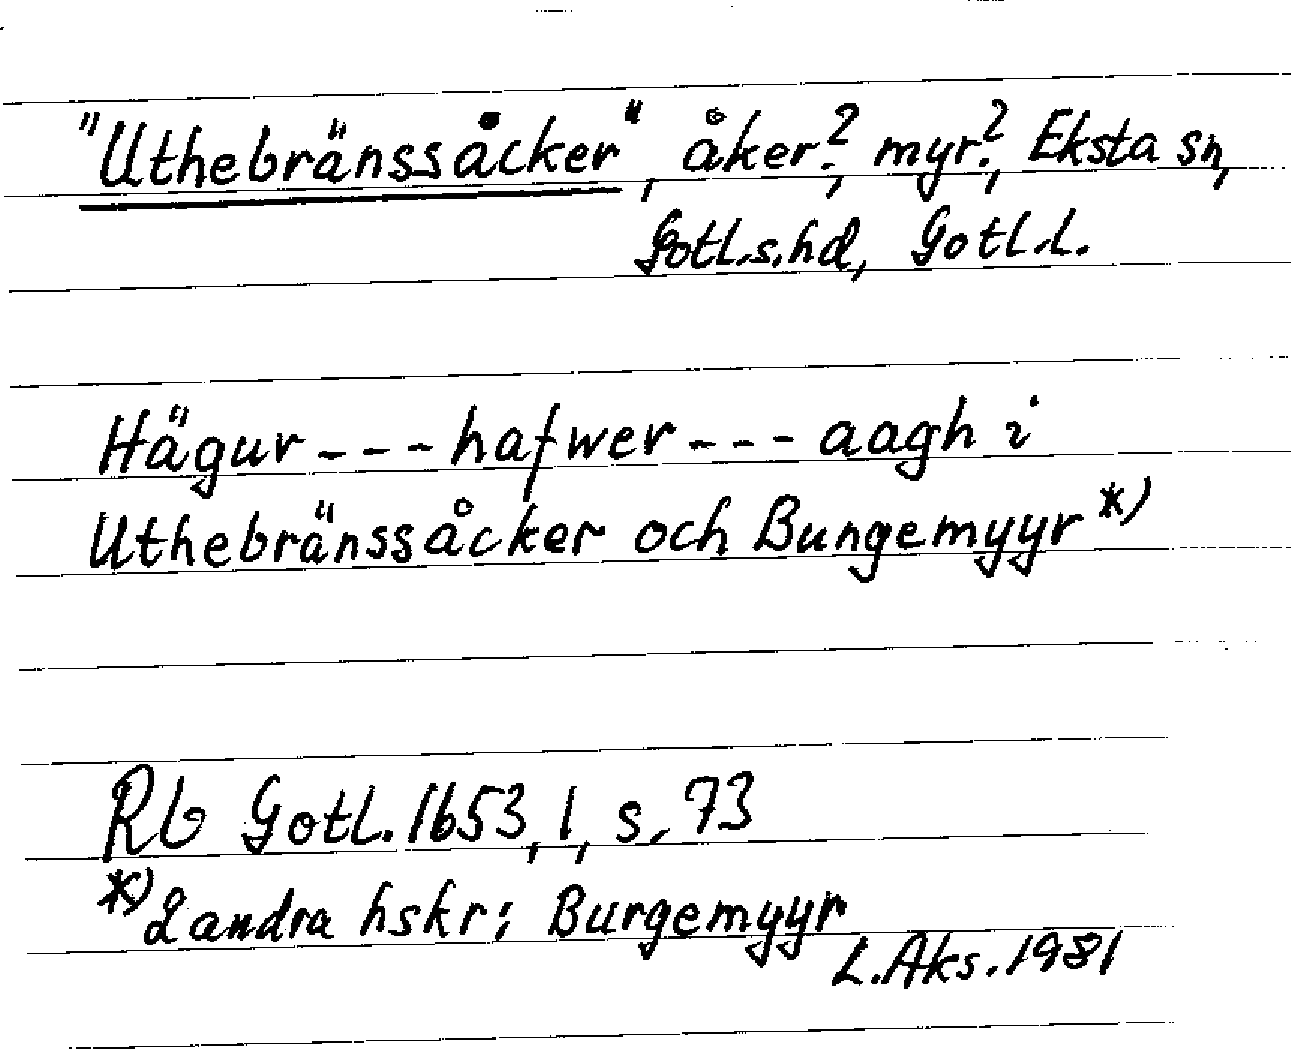 "Uthebränssåcker", åker?, myr?, Eksta sn,
Gotl.s.hd, Gotl.l.
Hägur --- hafwer --- aagh i
Uthebränssåcker och Bungemyyr *)
Rb Gotl. 1653, 1, s. 73
*) 2 andra hskr: Burgemyyr
L.Aks. 1981